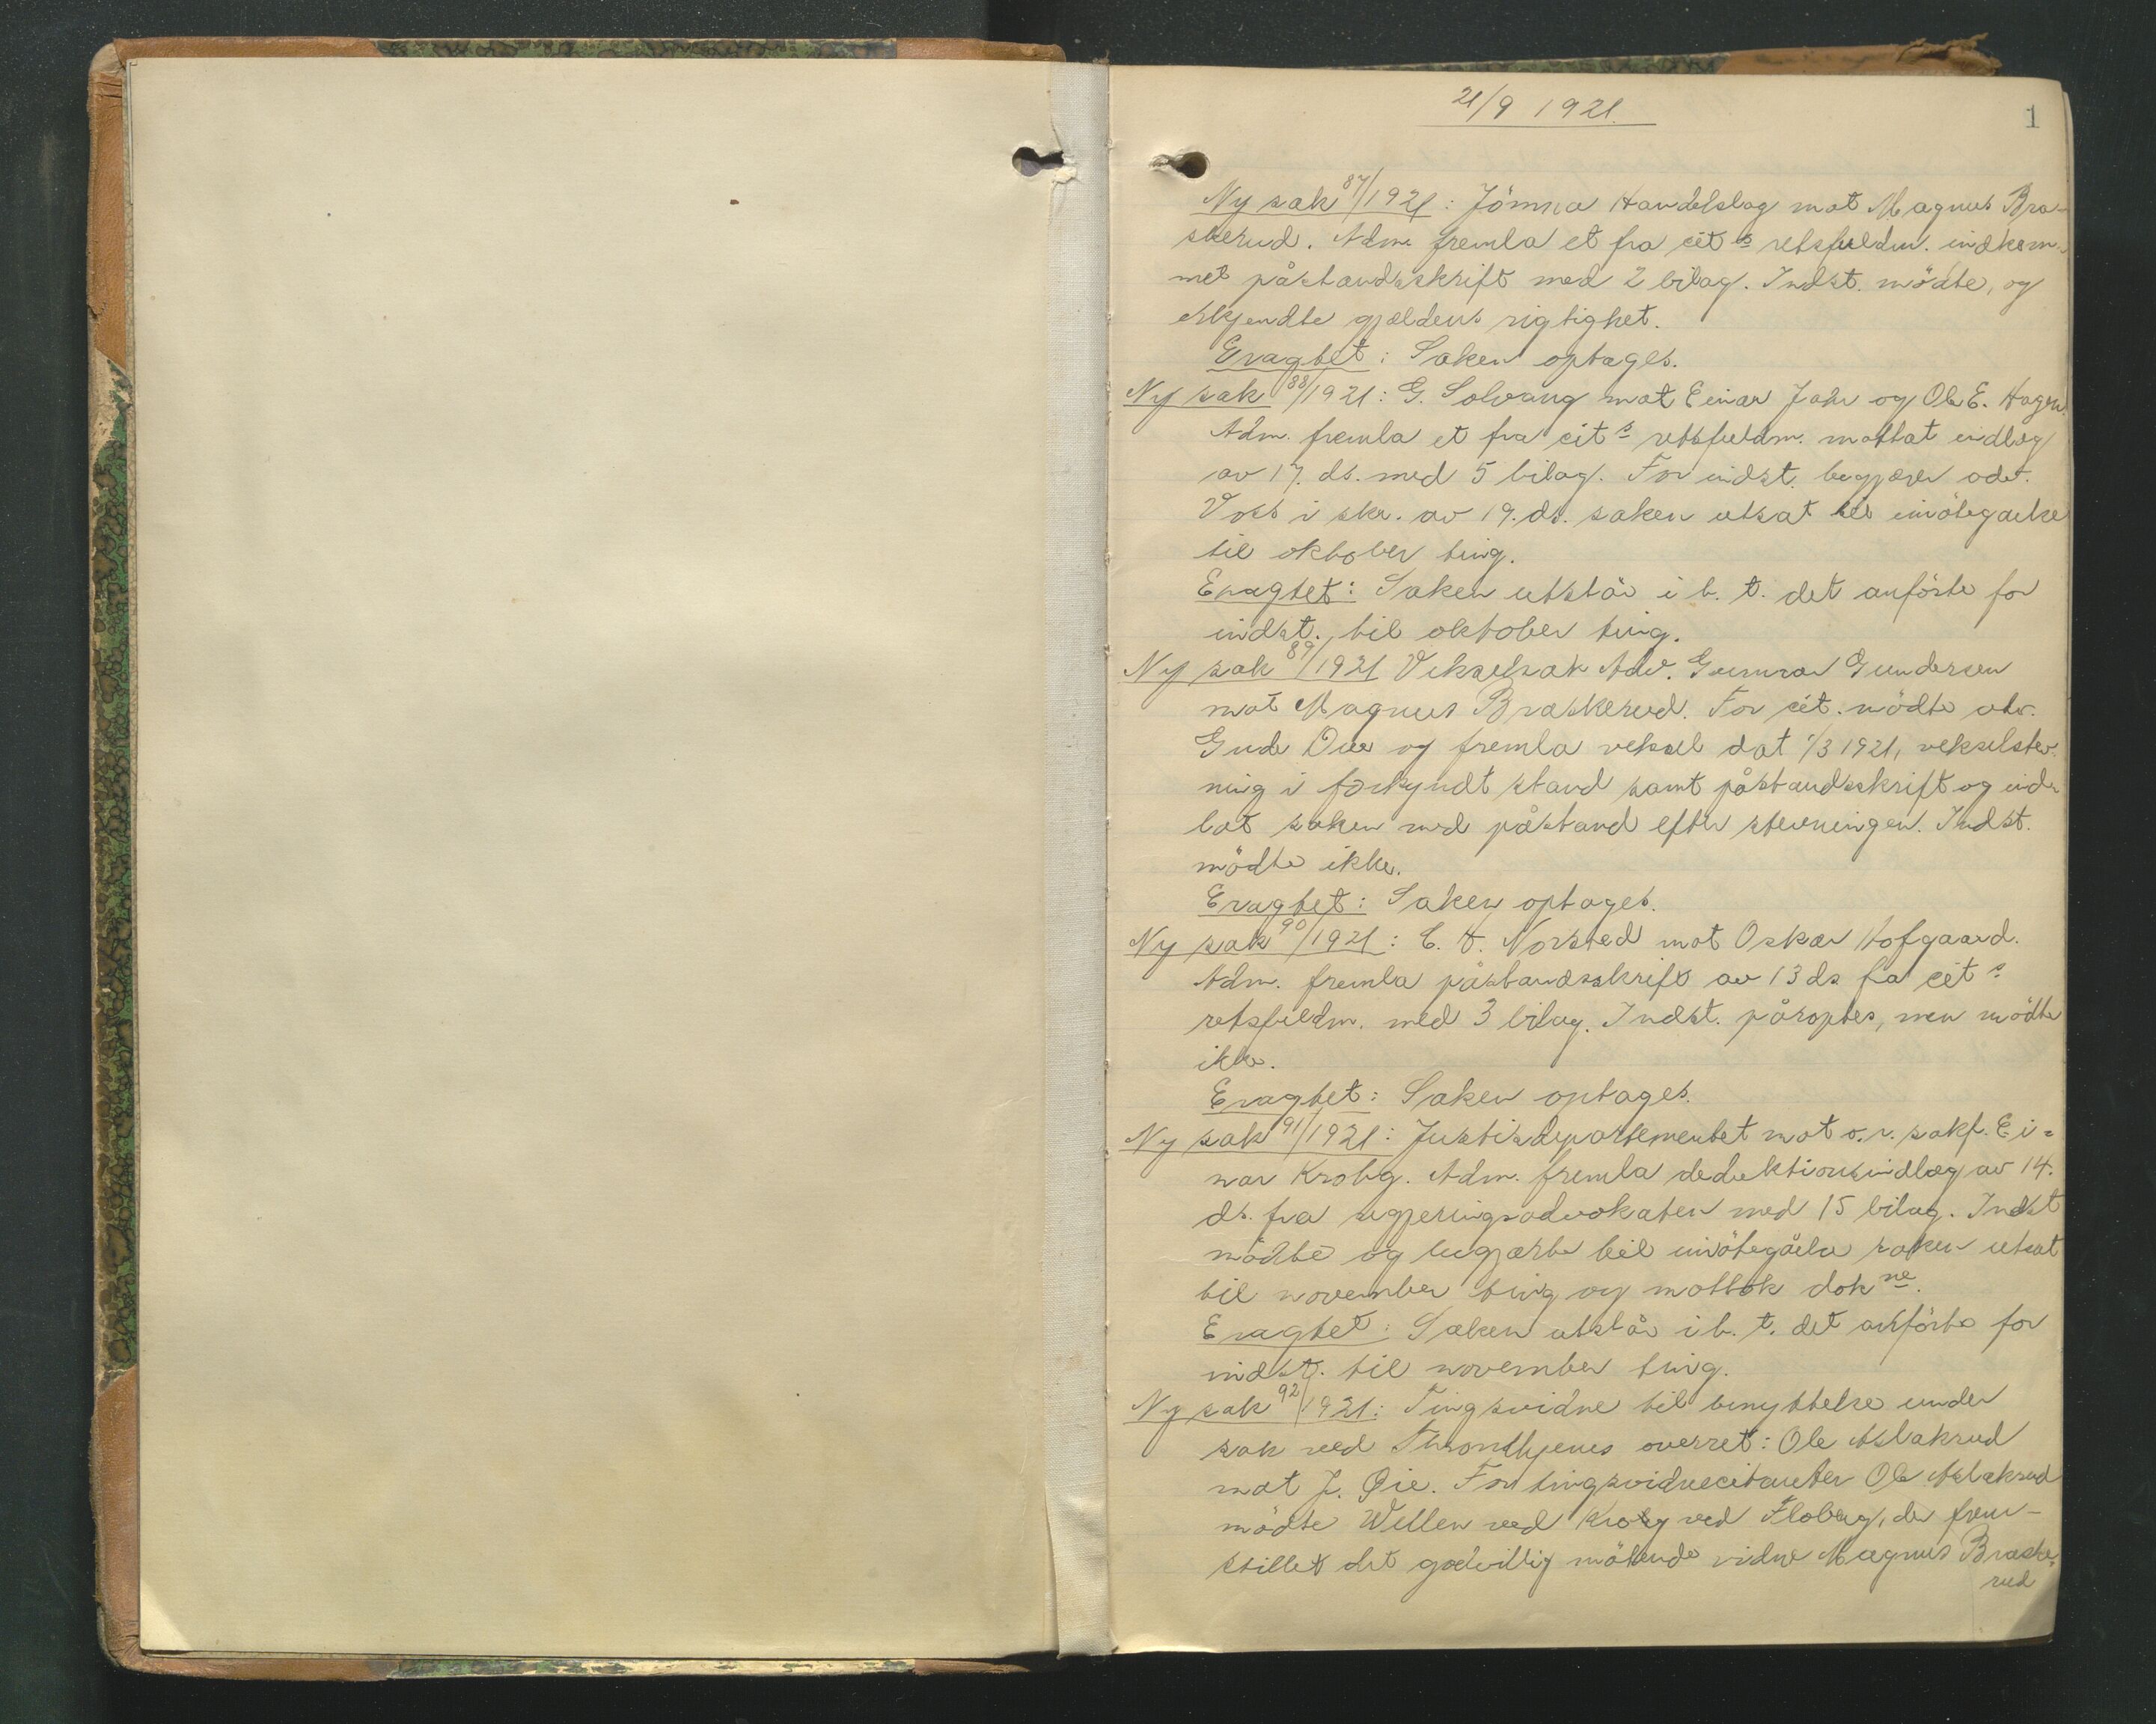 21/9 1921.
1
Ny sak 87/1921: Jömna Handelslag mot Magnus Bra-
skerud. Adm. fremla et fra cit s retsfuldm. indkom-
met påstandsskrift med 2 bilag. Indst. mödte, og
erkjendte gjældens rigtighet.
Eragtet: Saken optages.
Ny sak 88/1921: G. Solvang mot Einar Jahr og Ole E. Hagen.
Adm. fremla et fra cit s retsfuldm. mottat indlæg
av 17. ds. med 5 bilag. For indst. begjærer adv.
Voss i skr. av 19. ds. saken utsat til imötegaelse
til oktober ting.
Eragtet: Saken utstår i h. t. det anförte for
indst. til oktober ting.
Ny sak 89/1921 Vekselsak Adv. Gunnar Gundersen
mot Magnus Braskerud. For cit. mödte adv.
Gude Due og fremla veksel dat 1/3 1921, vekselstev-
ning i forkyndt stand samt påstandsskrift og ind-
lot saken med påstand efter stevningen. Indst.
mödte ikke.
Eragtet: Saken optages.
Ny sak 90/1921: C. A. Norsted mot Oskar Hofgaard.
Adm. fremla påstandsskrift av 13 ds fra cit s
retsfuldm. med 3 bilag. Indst. påroptes, men mödte
ikke.
Eragtet: Saken optages.
Ny sak 91/1921: Justisdepartementet mot o.r. sakf. Ei=
nar Krohg. Adm. fremla deduktionsindlæg av 14.
ds. fra regjeringsadvokaten med 15 bilag. Indst
mödte og begjærte til imötegåelse saken utsat
til november ting og mottok dok ne.
Eragtet: Saken utstår i h. t. det anförte for
indst. til november ting.
Ny sak 92/1921: Tingsvidne til benyttelse under
sak ved Throndhjems overret: Ole Aslakrud
mot J. Øie. For tingsvidnecitanten Ole Aslakrud
mödte Wellen ved Krohg ved Floberg, der frem-
stillet det godvillig mötende vidne Magnus Braske-
rud